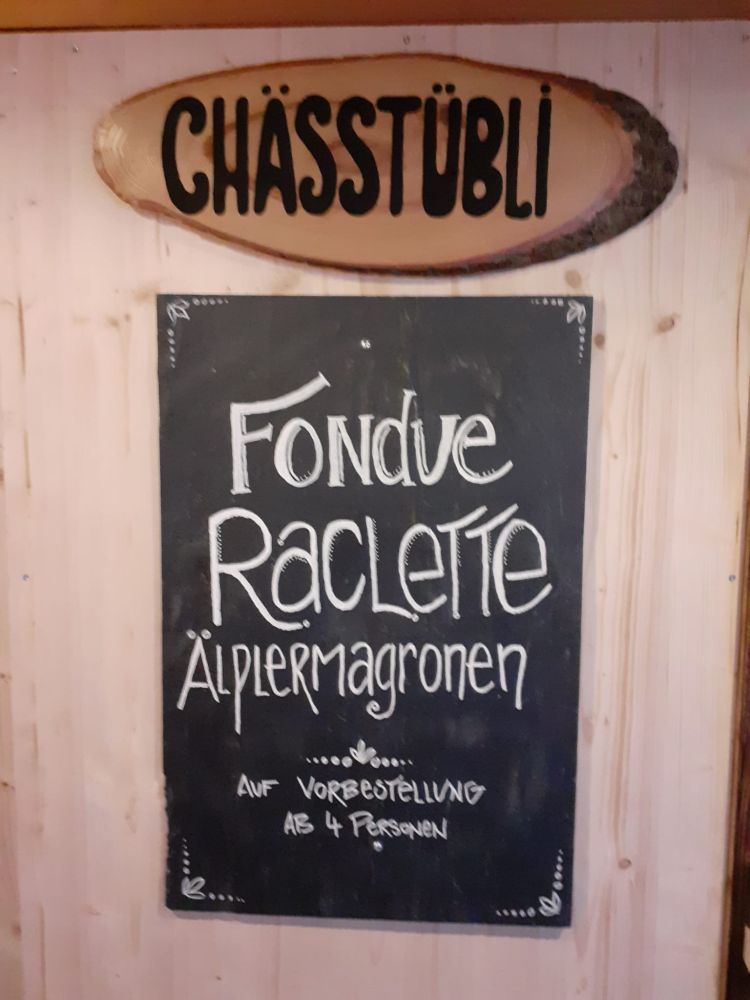 CHÄSSTÜBLi
FONDUE
RACLETTE
ÄLPLERMAGRONEN
AUF VORBESTELLUNG
AB 4 PERSONEN